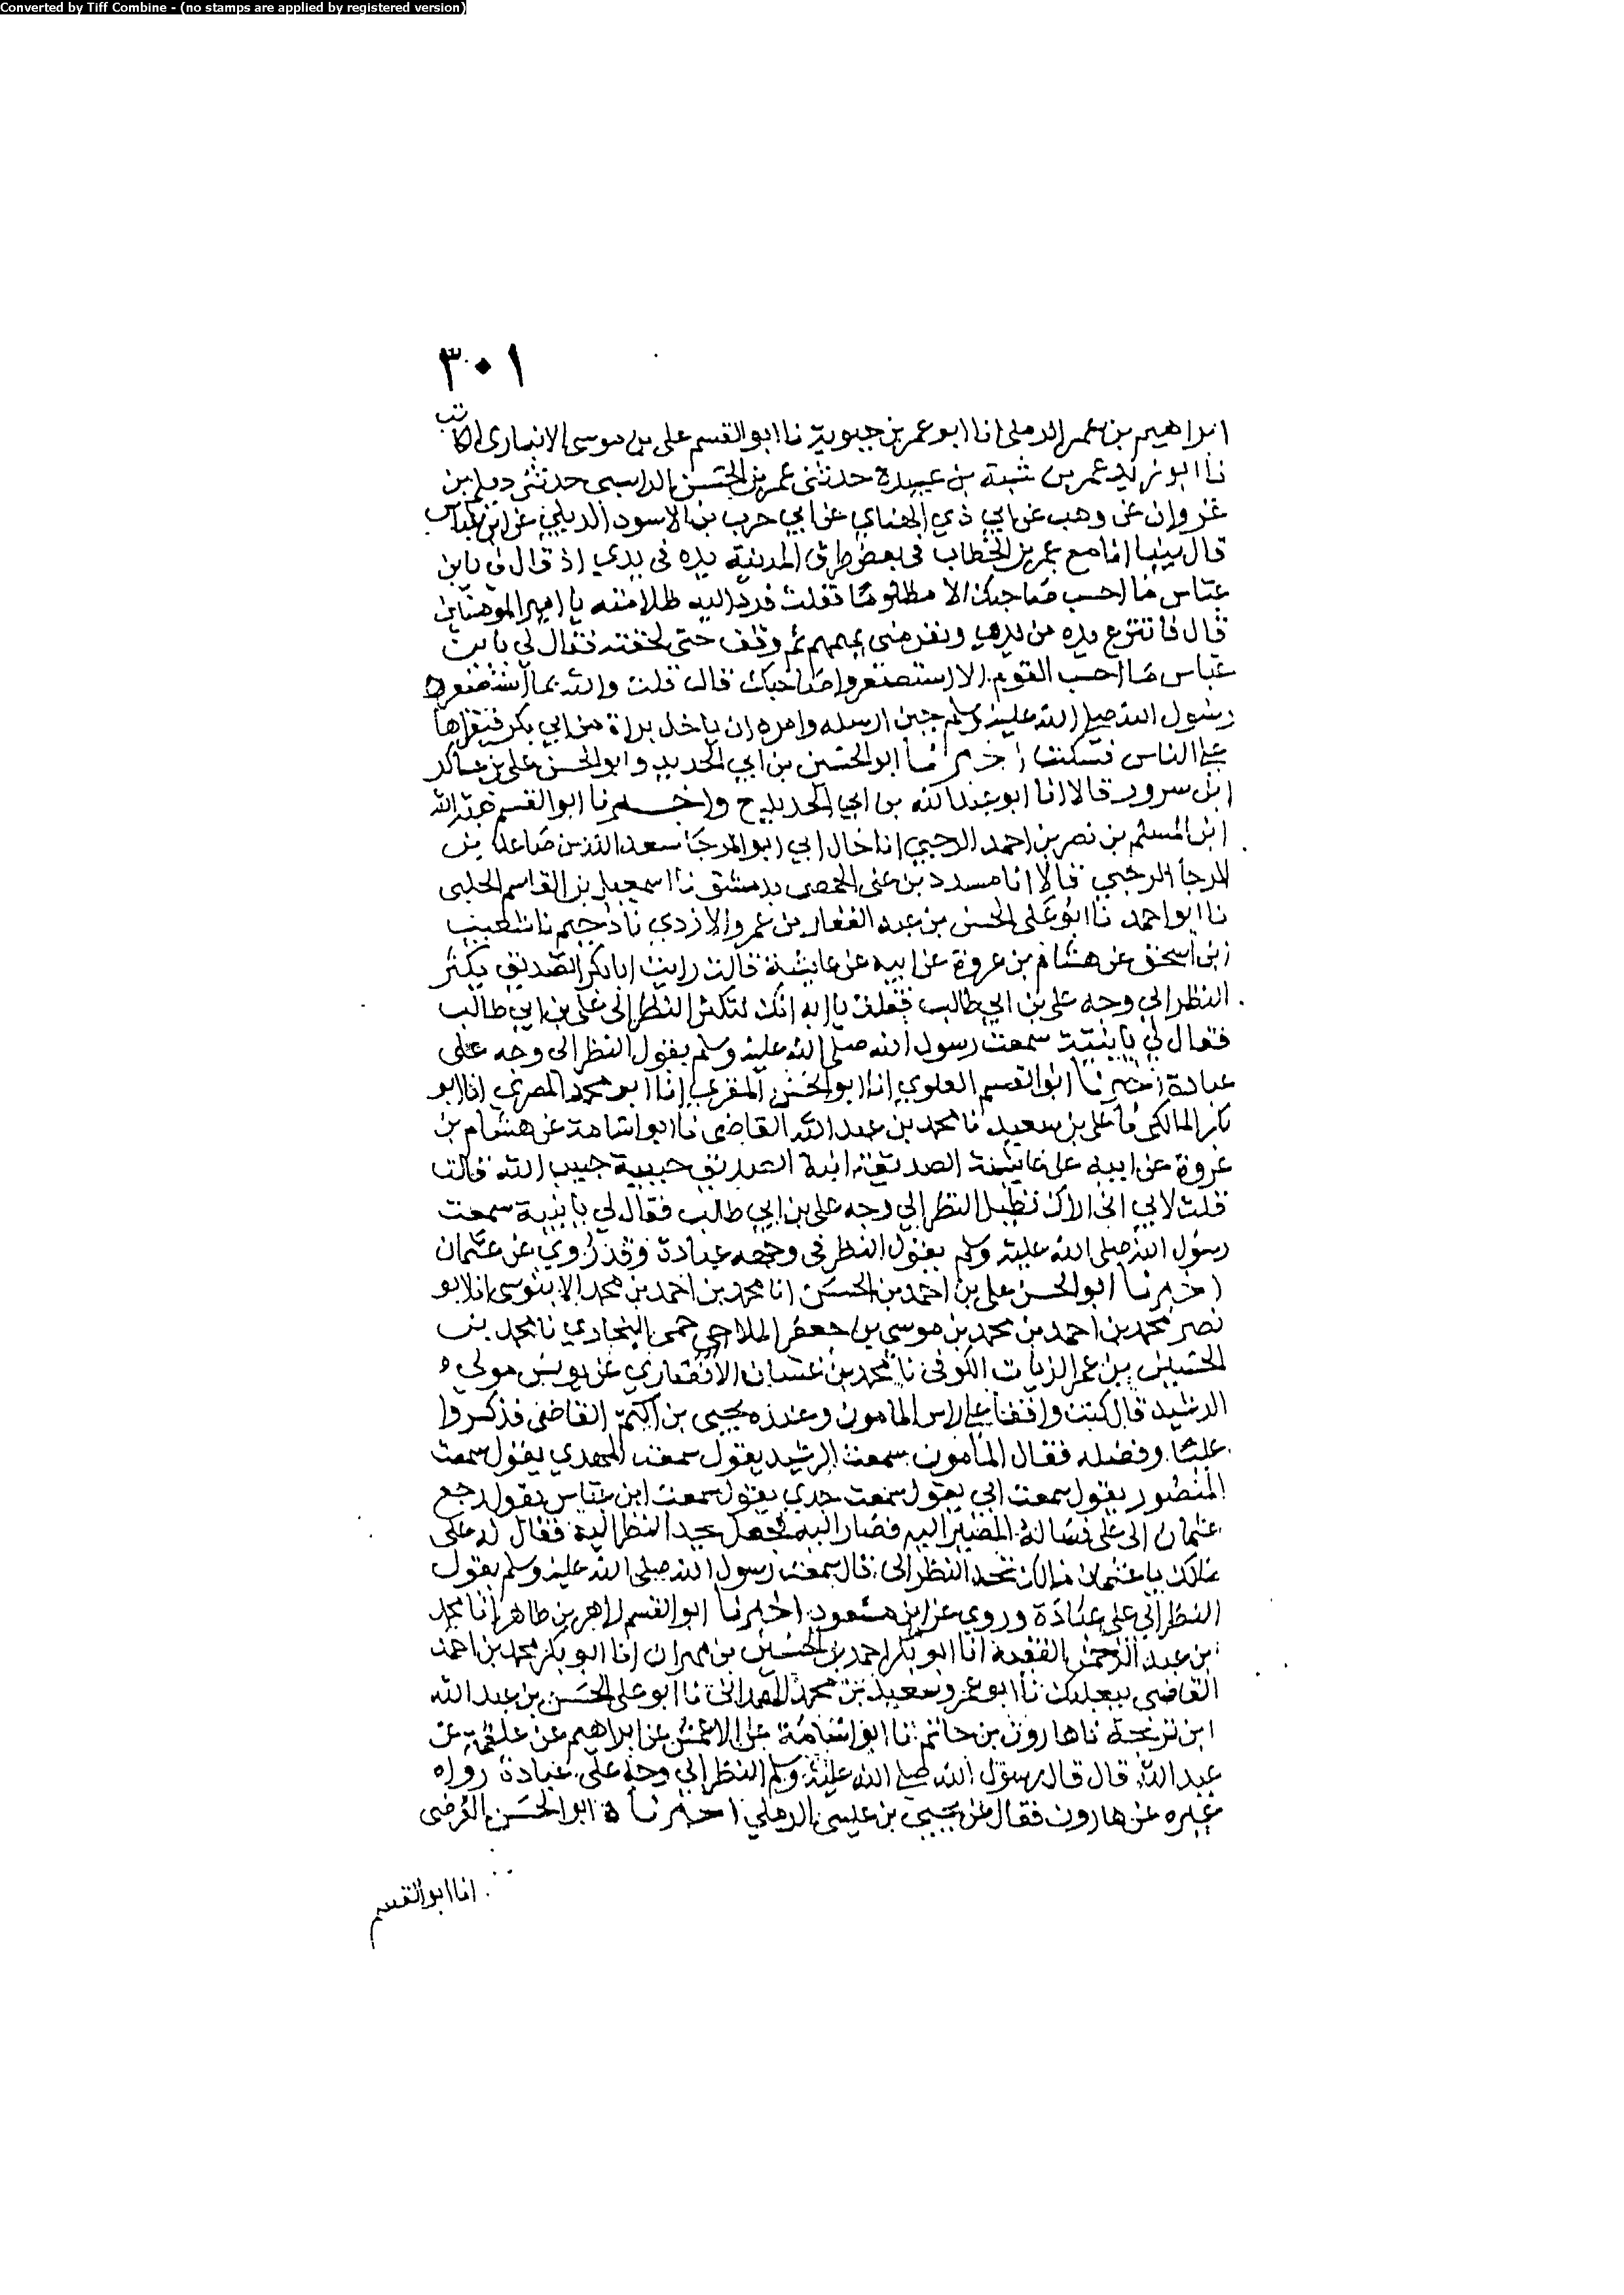 Converted by Tiff Combine - (no stamps are applied by registered version)
٣٠١
ابراهيم بن عمر الرملى انا ابو عمر بن حيوية نا ابو القسم على بن موسى الانبارى الكاتب
نا ابو زيد عمر بن شبة بن عبيدة حدثنى عمر بن الحسن الراسبى حدثنى ديلم بن
غزوان عن وهب عن ابي ذي الهناي عن ابي حرب بن الاسود الديلي عن ابن عباس
قال بينا انا مع عمر بن الخطاب فى بعض طرق المدينة يده فى يدي اذ قال لى يا بن
عباس ما احسب صاحبك الا مظلوما فقلت فرد اليه ظلامته يا امير المومنين
قال فانتزع يده من يدي ونفر منى يهمهم ثم وقف حتى لحقته فقال لي يا بن
عباس ما احسب القوم الا استصغروا صاحبك قال قلت والله ما استصغره
رسول الله صلى الله عليه وسلم حين ارسله وامره ان ياخذ براة من ابي بكر فيقراها
على الناس فسكت اخبرنا ابو الحسين بن ابي الحديد وابو الحسن على بن عساكر
ابن سرور قالا انا ابو عبد الله بن ابي الحديد ح واخبرنا ابو القسم عبد الله
ابن المسلم بن نصر بن احمد الرحبي انا خال ابي ابو المرجا سعد الله بن صاعد بن
المرجا الرحبي قالا انا مسدد بن على الحمصى بدمشق نا اسمعيل بن القاسم الحلبى
نا ابو احمد نا ابو على الحسن بن عبد الغفار بن عمرو الازدي نا دحيم نا شعيب
ابن اسحق عن هشام بن عروة عن ابيه عن عايشة قالت رايت ابا بكر الصديق يكثر
النظر الى وجه على بن ابي طالب فقلت يا ابه انك لتكثر النظر الى على بن ابي طالب
فقال لي يا بنية سمعت رسول الله صلى الله عليه وسلم يقول النظر الى وجه على
عبادة اخبرنا ابو القسم العلوي انا ابو الحسن المقري انا ابو محمد المصري انا ابو
بكر المالكى نا على بن سعيد نا محمد بن عبد الله القاضى نا ابو اسامة عن هشام بن
عروة عن ابيه عن عايشة الصديقة ابنة الصديق حبيبة حبيب الله قالت
قلت لابي انى اراك تطيل النظر الى وجه على بن ابي طالب فقال لي يا بنية سمعت
رسول الله صلى الله عليه وسلم يقول النظر فى وجهه عبادة وقد روي عن عثمان
اخبرنا ابو الحسن على بن احمد بن الحسن انا محمد بن احمد بن محمد الابنوسى انا ابو
نصر محمد بن احمد بن محمد بن موسى بن جعفر الملاحمى البخاري نا محمد بن
الحسين بن عمر الزيات الكوفى نا محمد بن غسان الانصاري عن يونس مولى
الرشيد قال كنت واقفا على راس المامون وعنده يحيى بن اكثم القاضى فذكروا
عليا وفضله فقال المامون سمعت الرشيد يقول سمعت المهدي يقول سمعت
المنصور يقول سمعت ابي يقول سمعت جدي يقول سمعت ابن عباس يقول رجع
عثمان الى على فساله المصير اليه فصار اليه فجعل يحد النظر اليه فقال له على
مالك يا عثمان مالك تحد النظر الى قال سمعت رسول الله صلى الله عليه وسلم يقول
النظر الى على عبادة وروي عن ابن مسعود اخبرنا ابو القسم زاهر بن طاهر انا محمد
بن عبد الرحمن الفقيه انا ابو بكر احمد بن الحسين بن مهران انا ابو بكر محمد بن احمد
القاضى ببعلبك نا ابو عمرو سعيد بن محمد الهمدانى نا ابو على الحسن بن عبد الله
ابن ترنجة نا هارون بن حاتم نا ابو اسامة عن الاعمش عن ابراهيم عن علقمة عن
عبد الله قال قال رسول الله صلى الله عليه وسلم النظر الى وجه على عبادة رواه
غيره عن هارون فقال عن يحيى بن عيسى الرملي اخبرناه ابو الحسن الفرضى
انا ابو القسم